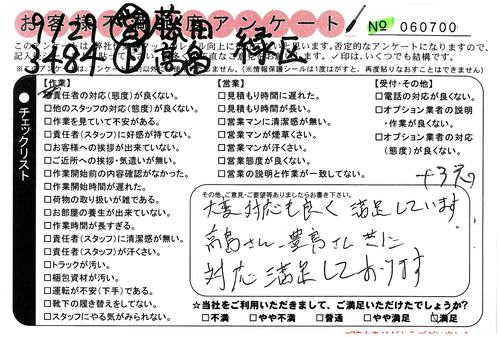 お客様不満度アンケート
№ 060700
9/29
3484
緑区
チェックリスト
【作業】
□責任者の対応(態度)が良くない。
□他のスタッフの対応(態度)が良くない。
□作業を見ていて不安がある。
□責任者(スタッフ)に好感が持てない。
□お客様への挨拶が出来ていない。
□ご近所への挨拶・気遣いが無い。
□作業開始前の内容確認がなかった。
□作業開始時間が遅れた。
□荷物の取り扱いが雑である。
□お部屋の養生が出来ていない。
□作業時間が長すぎる。
□責任者(スタッフ)に清潔感が無い。
□責任者(スタッフ)が汗くさい。
□トラックが汚い。
□梱包資材が汚い。
□運転が不安(下手)である。
□靴下の履き替えをしてない。
□スタッフにやる気がみられない。
【営業】
□見積もり時間に遅れた。
□見積もり時間が長い。
□営業マンに清潔感が無い。
□営業マンが煙草くさい。
□営業マンが汗くさい。
□営業態度が良くない。
□営業の説明と作業が一致してない。
【受付・その他】
□電話の対応が良くない。
□オプション業者の説明
・作業が良くない。
□オプション業者の対応
(態度)が良くない。
その他、ご意見・ご要望等ありましたらお書き下さい。
大変対応も良く 満足しています
高畠さん 豊島さん 共に
対応 満足しております
☆当社をご利用いただきまして、ご満足いただけたでしょうか?
□不満 □やや不満 □普通 □やや満足 ☑満足